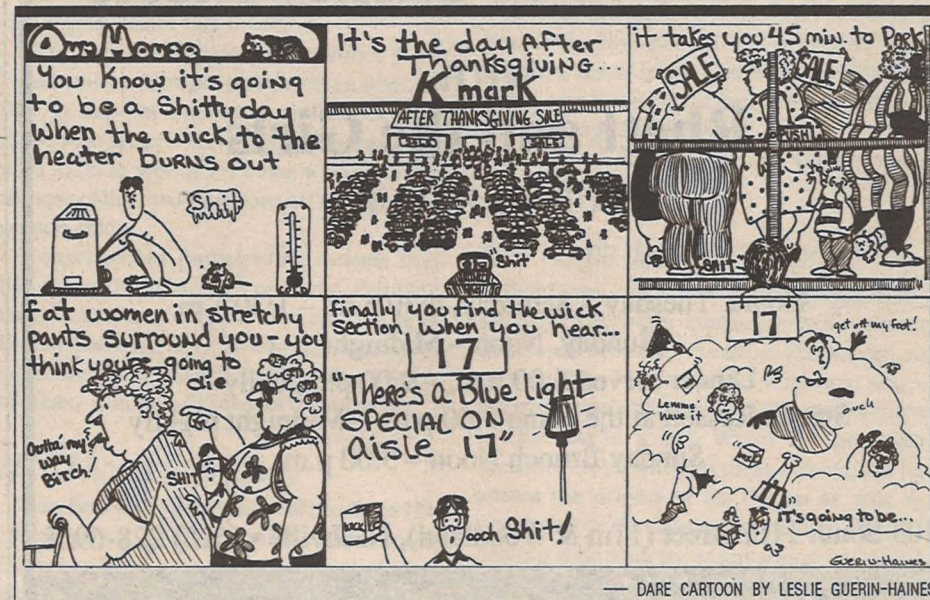 Our House
You know it's going
to be a Shitty day
when the wick to the
heater BURNS OUT
Shit
It's the day After
Thanksgiving...
K mark
AFTER THANKSGIVING SALE
SALE
SALE
"Shit"
it takes you 45 min. to PARK
SALE
SALE
PUSH
SHIT
fat women in stretchy
pants surround you - you
think you're going to
die
Outta' my
way
Bitch!
SHIT
finally you find the wick
section, when you hear...
17
"There's a Blue light
SPECIAL ON
aisle 17"
WICK
oooh Shit!
17
get off my foot!
Lemme'
have it
ouch
"IT'S going to be...
GUERIN-HAINES
— DARE CARTOON BY LESLIE GUERIN-HAINES